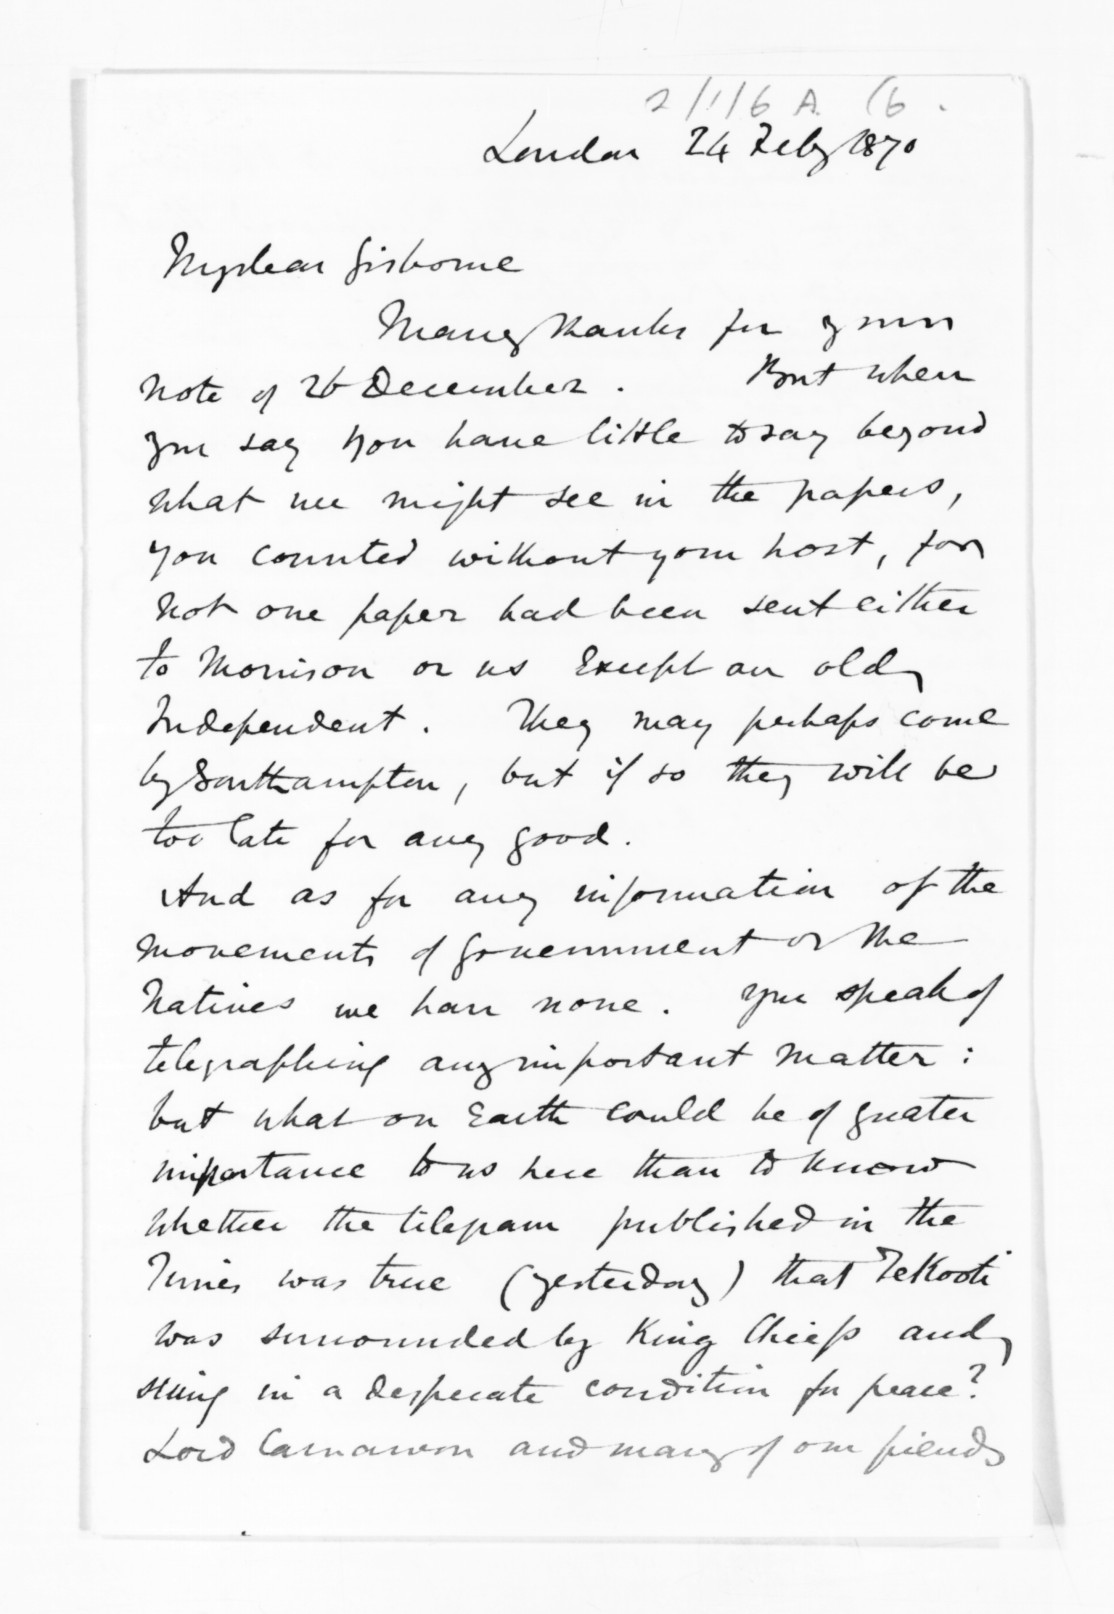 2/1/6 A (6.
London 24 Feby 1870
My dear Gisborne
Many thanks for your
note of 26 December. But when
you say you have little to say beyond
what we might see in the papers,
you counted without your host, for
not one paper had been sent either
to Morrison or us Except an old
Independent. They may perhaps come
by Southampton, but if so they will be
too late for any good.
And as for any information of the
movements of Government or the
Natives we have none. You speak of
telegraphing any important matter:
but what on Earth could be of greater
importance to us here than to know
whether the telegram published in the
Times was true (yesterday) that Te Kooti
was surrounded by King Chiefs and
suing in a desperate condition for peace?
Lord Carnarvon and many of our friends